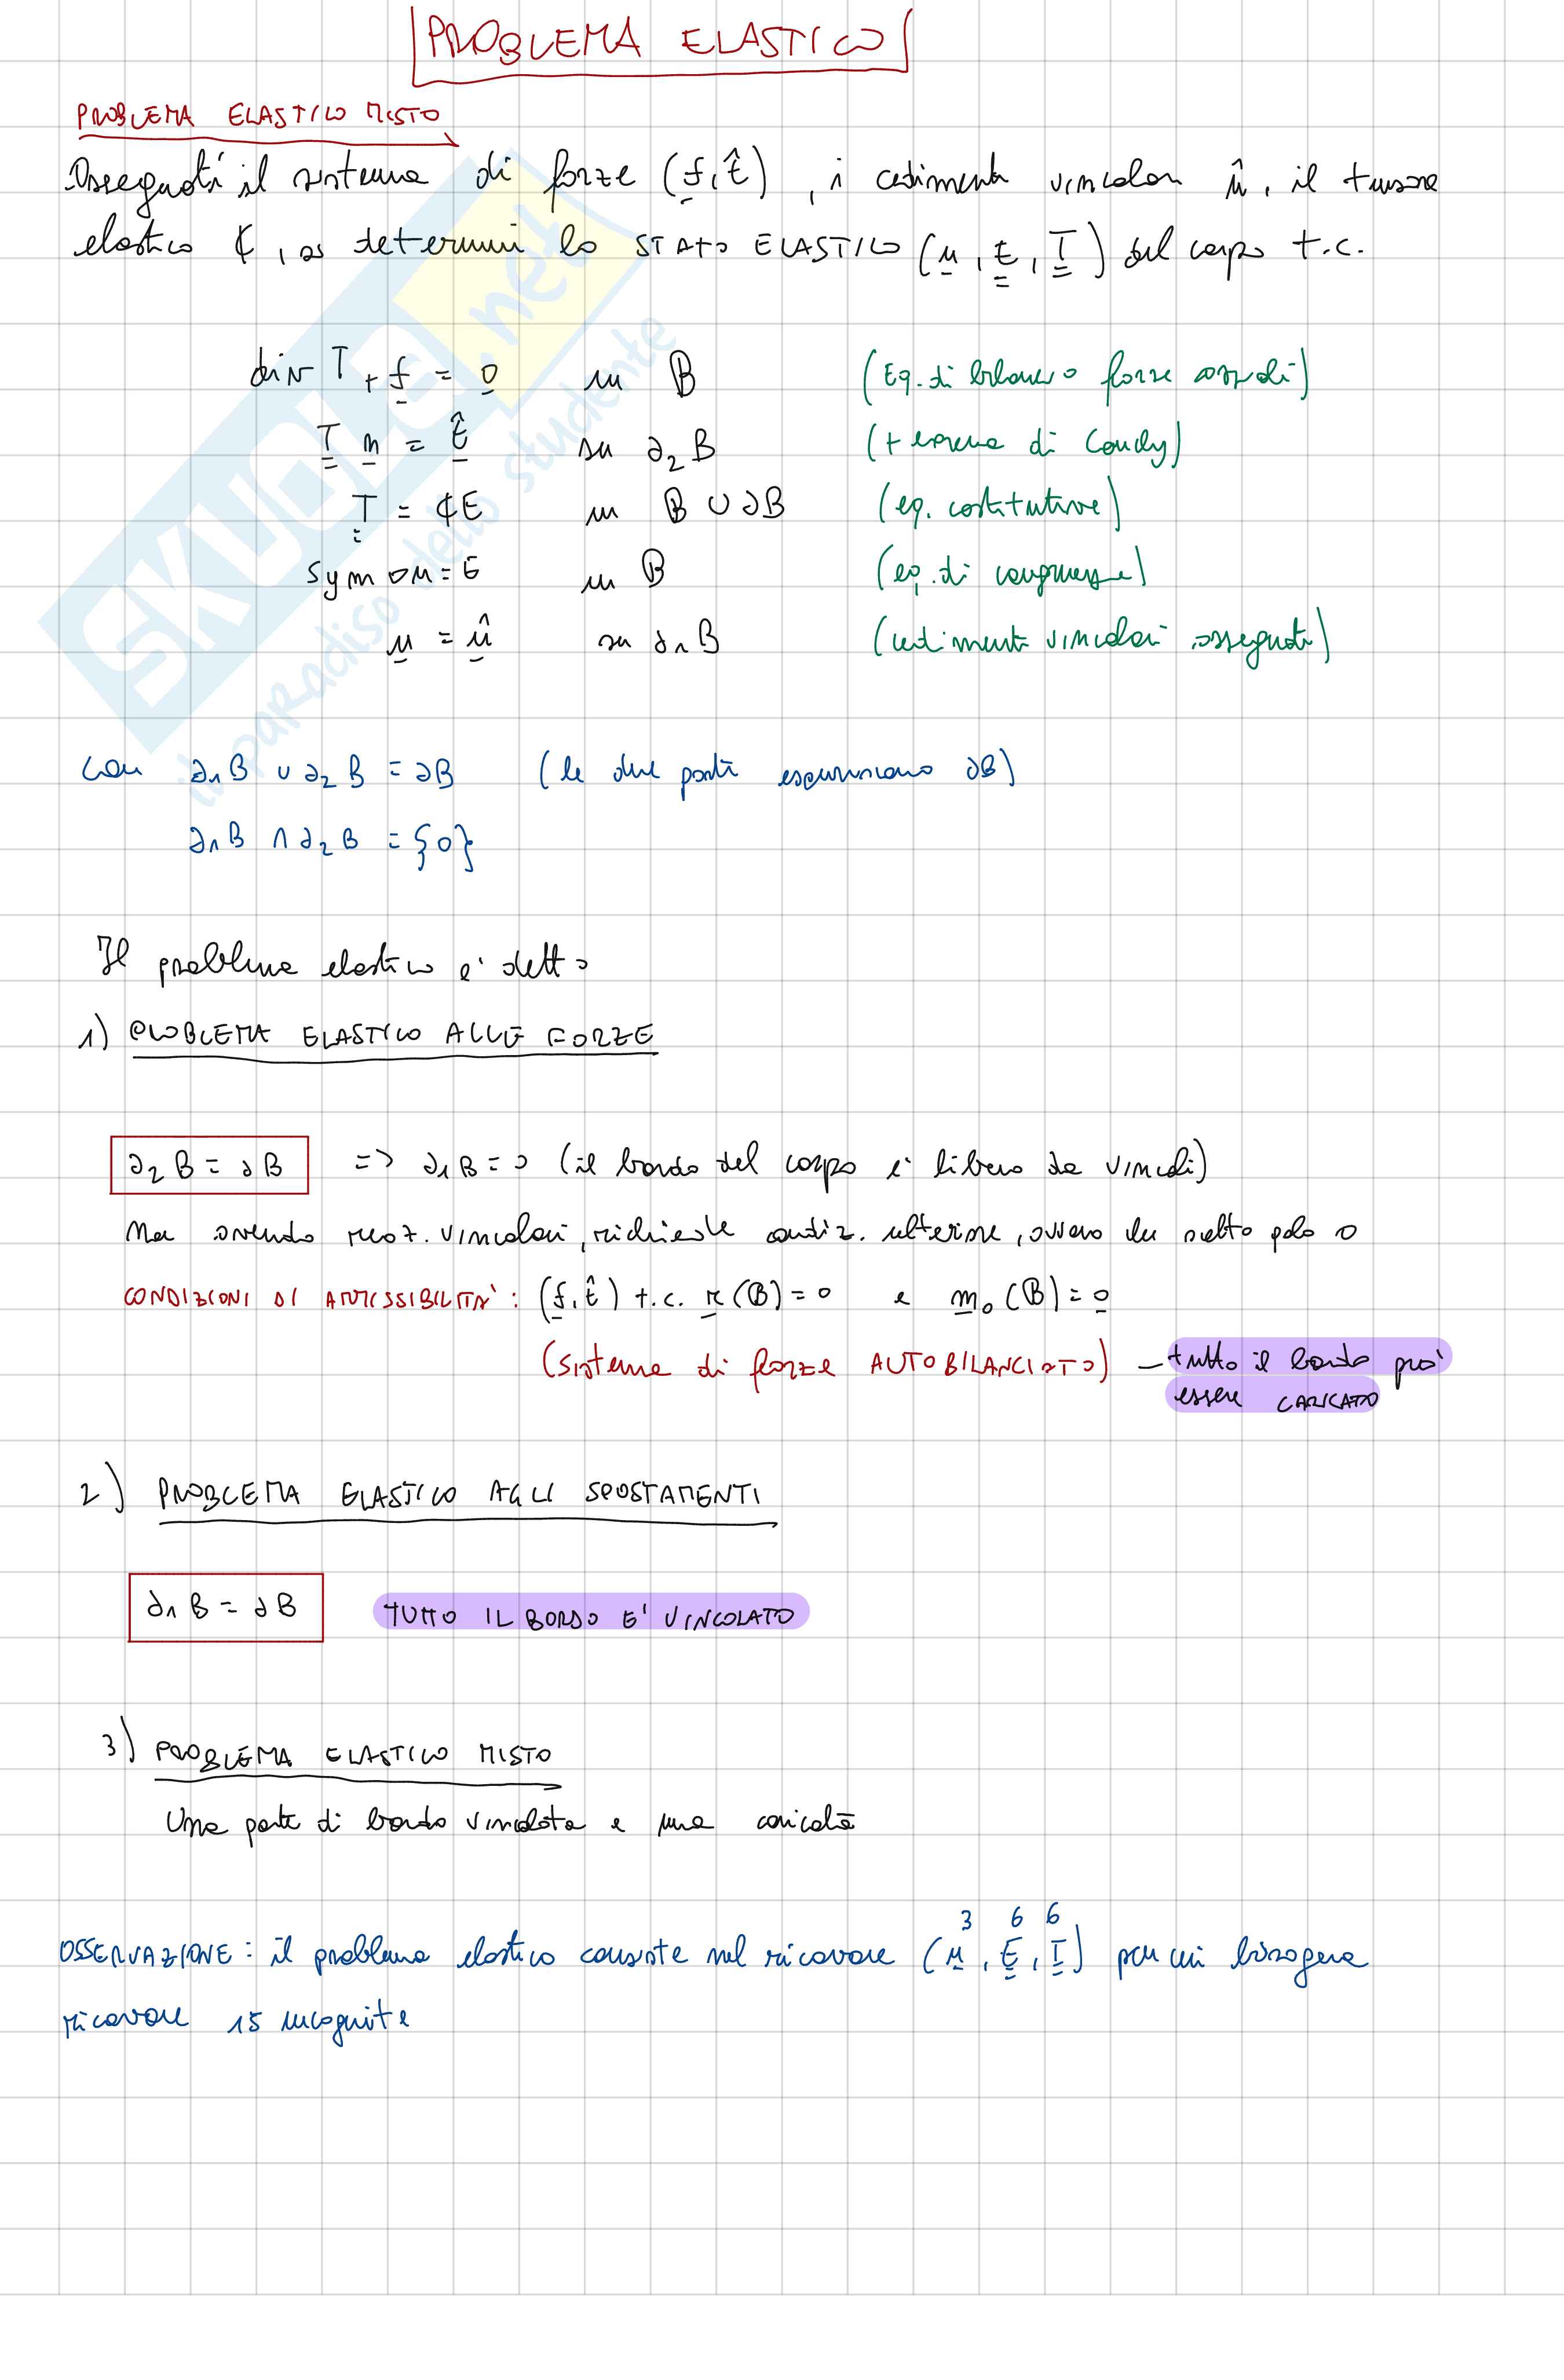 PROBLEMA ELASTICO
PROBLEMA ELASTICO MISTO
Assegnati il sistema di forze (f, t̂), i cedimenti vincolari û, il tensore
elastico ℂ, si determini lo STATO ELASTICO (u, E, T) del corpo t.c.
div T + f = 0 in B (Eq. di bilancio forze assegnate)
T n = t̂ su ∂₂B (teorema di Cauchy)
T = ℂE in B ∪ ∂B (eq. costitutive)
sym ∇u = E in B (eq. di congruenza)
u = û su ∂₁B (cedimenti vincolari assegnati)
con ∂₁B ∪ ∂₂B = ∂B (le due parti esauriscono ∂B)
∂₁B ∩ ∂₂B = {0}
Il problema elastico e' detto
1) PROBLEMA ELASTICO ALLE FORZE
∂₂B = ∂B => ∂₁B = 0 (il bordo del corpo e' libero da vincoli)
Non avendo reaz. vincolari, richiede condiz. ulteriore, ovvero che scelto polo o
CONDIZIONI DI AMMISSIBILITA': (f, t̂) t.c. r(B) = 0 e m₀(B) = 0
(sistema di forze AUTOBILANCIATO) – tutto il bordo puo'
essere CARICATO
2) PROBLEMA ELASTICO AGLI SPOSTAMENTI
∂₁B = ∂B TUTTO IL BORDO E' VINCOLATO
3) PROBLEMA ELASTICO MISTO
Una parte di bordo vincolata e una caricata
3 6 6
OSSERVAZIONE: il problema elastico consiste nel ricavare (u, E, T) per cui bisogna
ricavare 15 incognite
SKUOLA.net
il paradiso dello studente